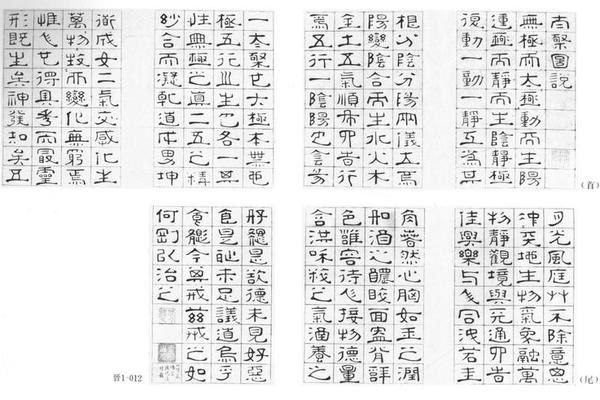 太極圖說
無極而太極動而生陽
動極而靜而生陰靜極
復動一動一靜互為其
根分陰分陽兩儀立焉
陽變陰合而生水火木
金土五氣順布四時行
焉五行一陰陽也陰陽
一太極也太極本無也
極五行之生也各一其
性無極之真二五之精
妙合而凝乾道成男坤
道成女二氣交感化生
萬物生而變化無窮焉
惟人也得其秀而最靈
形既生矣神發知矣五
(首)
月光風庭艸不除意思
沖天地生物氣象融萬
物靜觀境與元通四時
佳興樂与人同洩若主
肉蕃然心胸如玉之潤
和酒之醲睟面盎背詳
色雍容待人接物德量
含洪味殺之氣涵養之
(尾)
好纔是欲德未見好惡
食是恥未足議道烏乎
戒茲戒之如
何劉弘治之
晉1-012